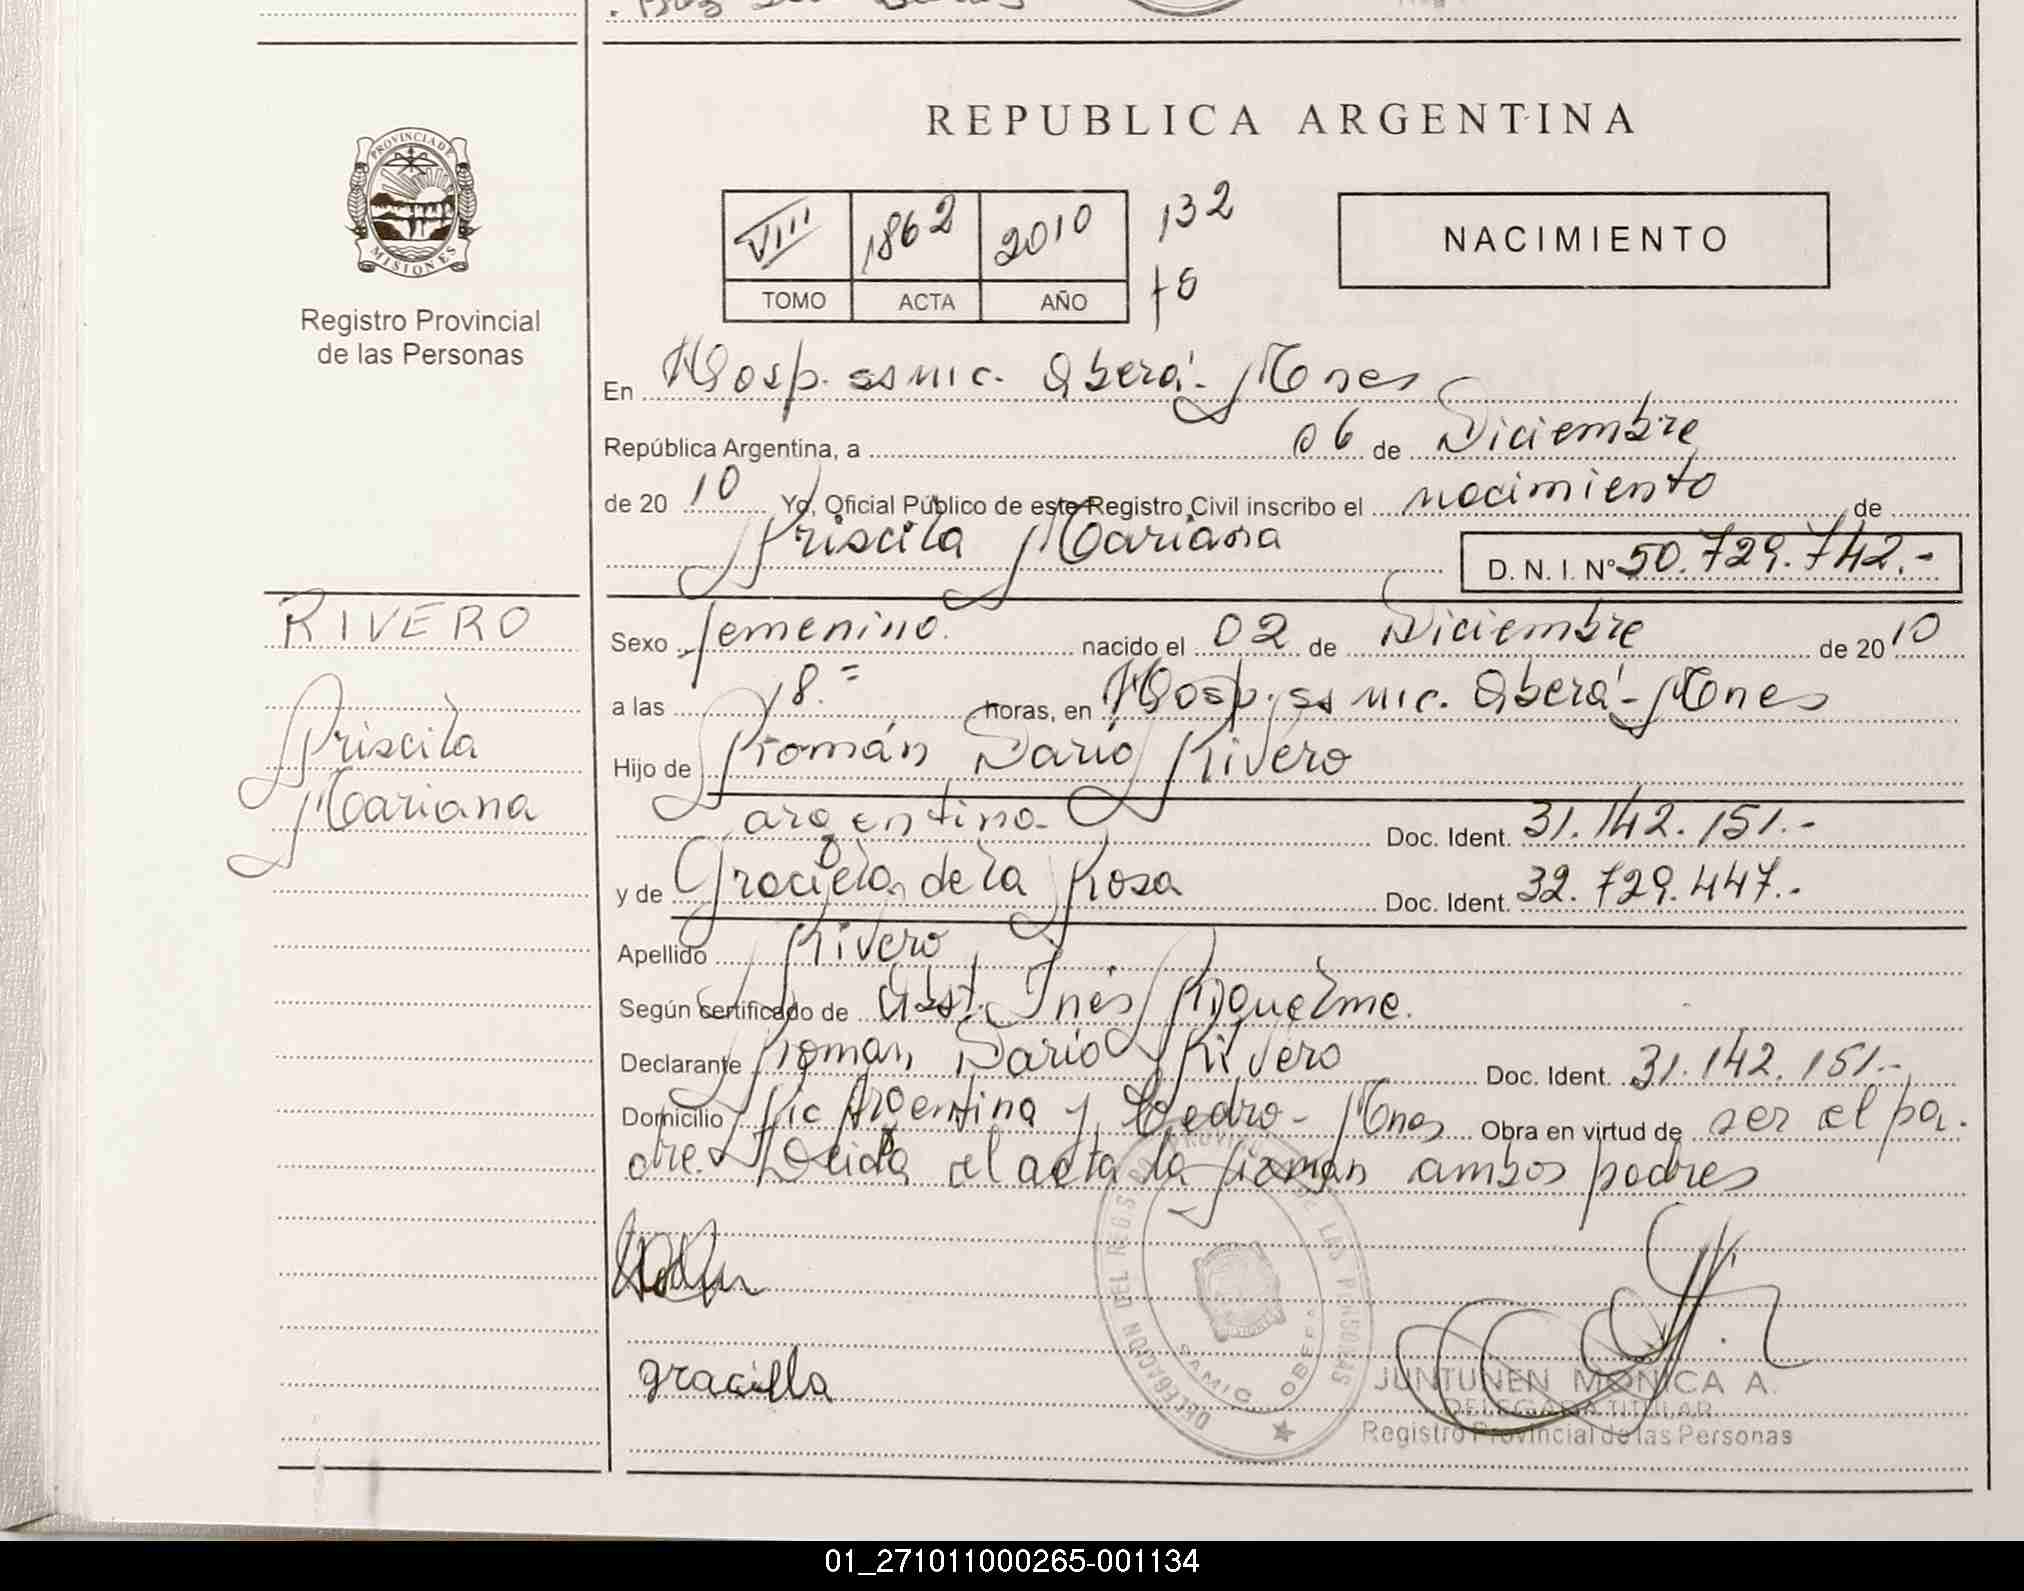 REPUBLICA ARGENTINA
PROVINCIA DE
MISIONES
Registro Provincial
de las Personas
VIII 1862 2010 132
TOMO ACTA AÑO
NACIMIENTO
En Hosp. ssmic. Oberá - Mnes
República Argentina, a 06 de Diciembre
de 20 10 Yo, Oficial Público de este Registro Civil inscribo el nacimiento de
Priscila Mariana D. N. I. Nº 50.729.742.-
RIVERO
Priscila
Mariana
Sexo femenino. nacido el 02 de Diciembre de 20 10
a las 18.= horas, en Hosp. ssmic. Oberá - Mnes
Hijo de Román Darío Rivero
argentino - Doc. Ident. 31.142.151.-
y de Graciela de la Rosa Doc. Ident. 32.729.447.-
Apellido Rivero
Según certificado de Obst. Inés Riquelme.
Declarante Román Darío Rivero Doc. Ident. 31.142.151.-
Domicilio Argentina y Cedro - Mnes Obra en virtud de ser el pa.
dre. Leida el acta la firman ambos padres
DELEGACION DEL REGISTRO PROVINCIAL DE LAS PERSONAS
SAMIC OBERA
graciela
JUNTUNEN MONICA A.
DELEGADA TITULAR
Registro Provincial de las Personas
01_271011000265-001134